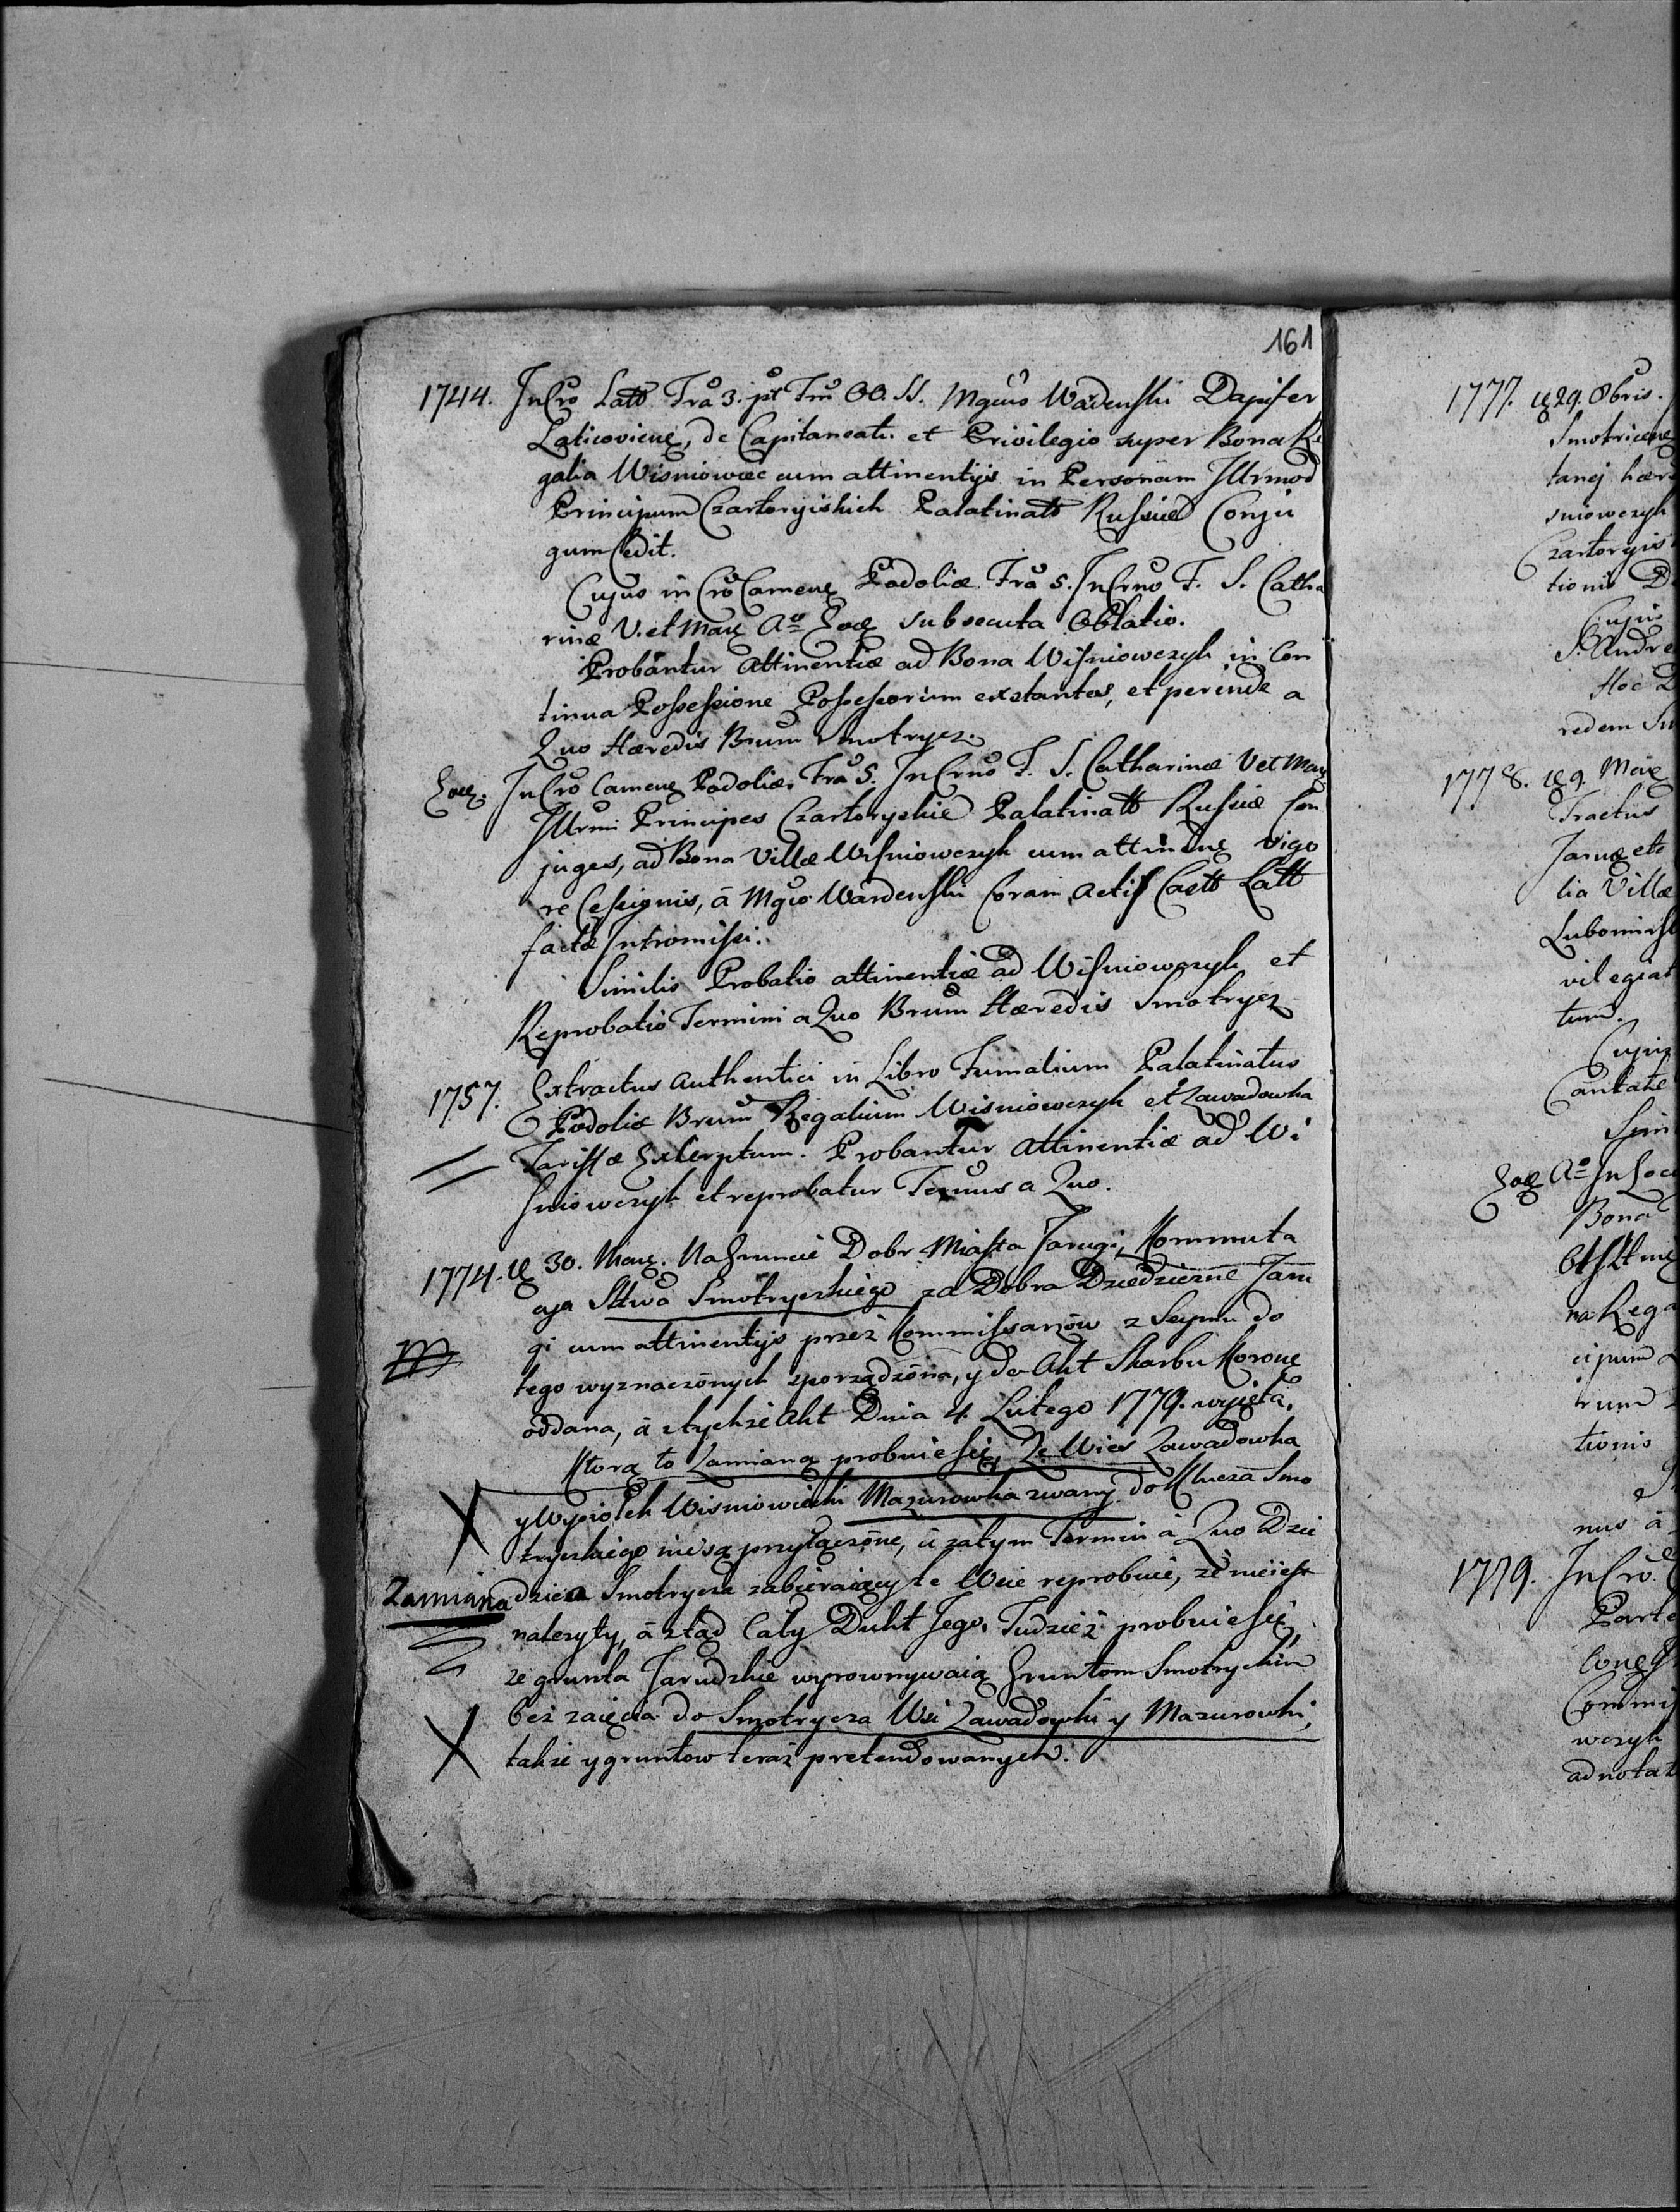 161
1744. In Cro Latt Fra 3. pt Fm OO. SS. Mgcus Wadenski Dapifer
Laticoviens, de Capitaneatu et Privilegio super Bona Re
galia Wisniowiec cum attinentijs in Personam Illrmor
Principum Czartoryiskich Palatinatt Russiæ Conju
gum Cedit.
Cujus in Cro Camene Podoliæ Fra 5. In Crno F. S. Catha
rinæ V. et Mar Ao Eoe subsecuta Oblatio.
Probantur Attinentiæ ad Bona Wisniowczyk in Con
tinua Possessione Possessorum extantes, et perinde a
Quo Hæredis Brum Smotrycz.
Eoe. In Cro Camene Podoliæ, Fra 5. In Crno F. S. Catharinæ V et Mar
Illrmi Principes Czartoryskie Palatinatt Russiæ Con
juges, ad Bona Villæ Wisniowczyk cum attinene vigo
re Cessionis, à Mgco Wardenski Coram Actis Castt Latt
factæ Intromissi.
Similis Probatio attinentiæ ad Wisniowczyk et
Reprobatio Termini a Quo Brum Hæredis Smotrycz
1757. Extractus Authentici in Libro Fumalium Palatinatus
Podoliæ Brum Regalium Wisniowczyk et Zawadowka
Tariffæ Excerptum. Probantur Attinentiæ ad Wi
sniowczyk et reprobatur Termus a Quo.
1774. 30. Mar. Na Gruncie Dobr Miasta Jarugi, Kommuta
cya Sttwa Smotryckiego za Dobra Dziedziczne Jaru
gi cum attinentijs przez Kommissarzow z Seymu do
tego wyznaczonych sporządzona, y do Akt Skarbu Korone
oddana, à z tychże Akt Dnia 4 Lutego 1779. wyięta.
Ktorą to Zamianą probuie się, Ze Wies Zawadowka
y Wypiołek Wisniowiecki Mazurowka zwany do Klucza Smo
tryckiego nie są przyłączone, à zatym Termin à Quo Dzie
Zamiana dzica Smotrycza zabieraiący te Wsie reprobuie, ze nieiest
nalezyty, à ztąd Cały Dukt Jego. Tudziez probuie się,
ze grunta Jarudzkie wyrownywaią Gruntom Smotryckim
bez zaięcia do Smotrycza Wsi Zawadowki y Mazurowki,
takze y gruntow teraz pretendowanych.
1777. 29. 8bris.
Smotricene
tanej hær
sniowczyk
Czartoryis
tionis D
Cujus
S. Andre
Hoc
redem Sm
1778. 9. Maie
Tractus
Jarug etc
lia Villæ
Lubomirs
vilegiat
tum.
Cujus
Cantate
Sim
Eoe Ao In Loc
Bona
na Rega
cipum
rum
tionis
nus à
1779. In Cro
Parte
Commis
wczyk
adnota